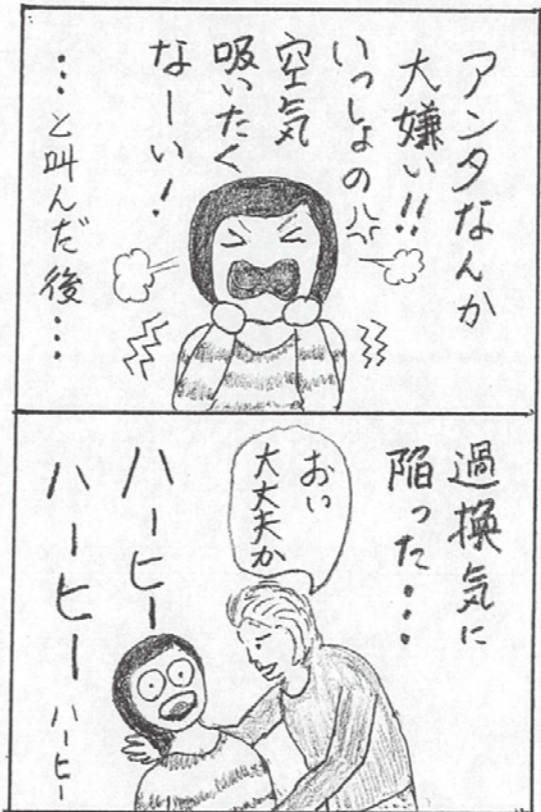 アンタなんか
大嫌い!!
いっしょの
空気
吸いたく
なーい!
…と叫んだ後…
過換気に
陥った…
おい
大丈夫か
ハーヒー
ハーヒー
ハーヒー